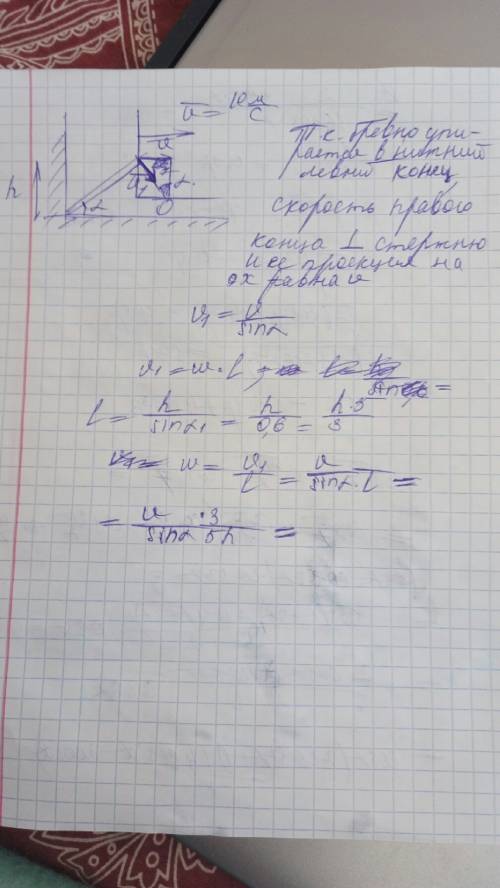 v̅ = 10 м/с
v
h
v₁
α
α
O
Т.к. бревно упи-
рается в нижний
левый конец,
скорость правого
конца ⊥ стержню
и её проекция на
ox равна v
v₁ = v/sinα
v₁ = w·l;
l = h/sinα₁ = h/0,6 = h·5/3
w = v₁/l = v/(sinα·l) =
= v·3/(sinα 5h) =